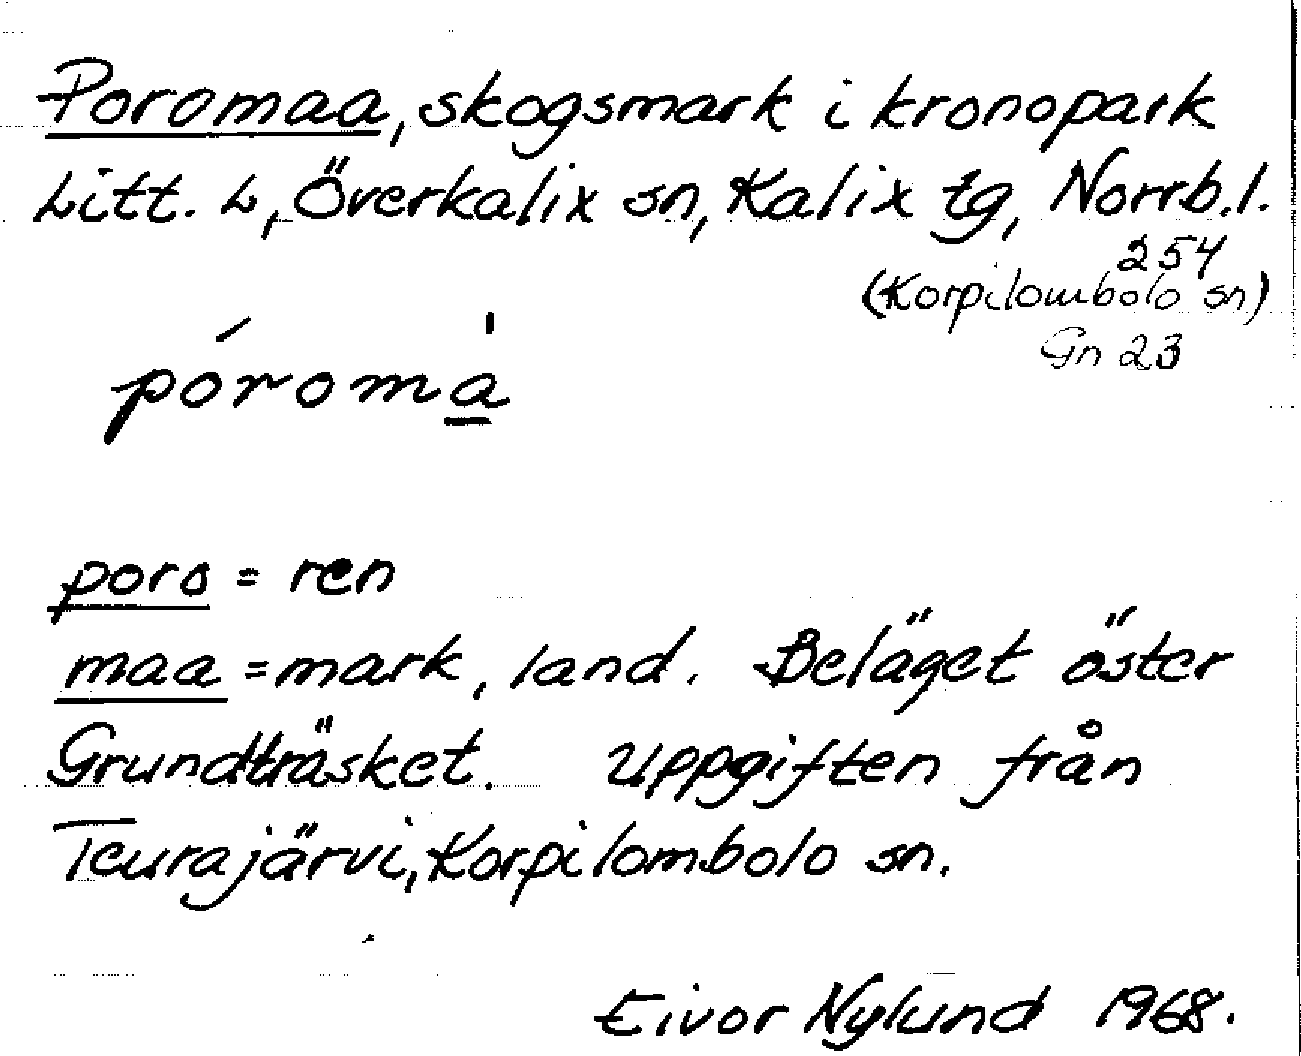 Poromaa, skogsmark i kronopark
Litt. L, Överkalix sn, Kalix tg, Norrb.l.
254
(Korpilombolo sn)
Gn 23
póromà
poro = ren
maa = mark, land. Beläget öster
Grundträsket. Uppgiften från
Teurajärvi, Korpilombolo sn.
Eivor Nylund 1968.